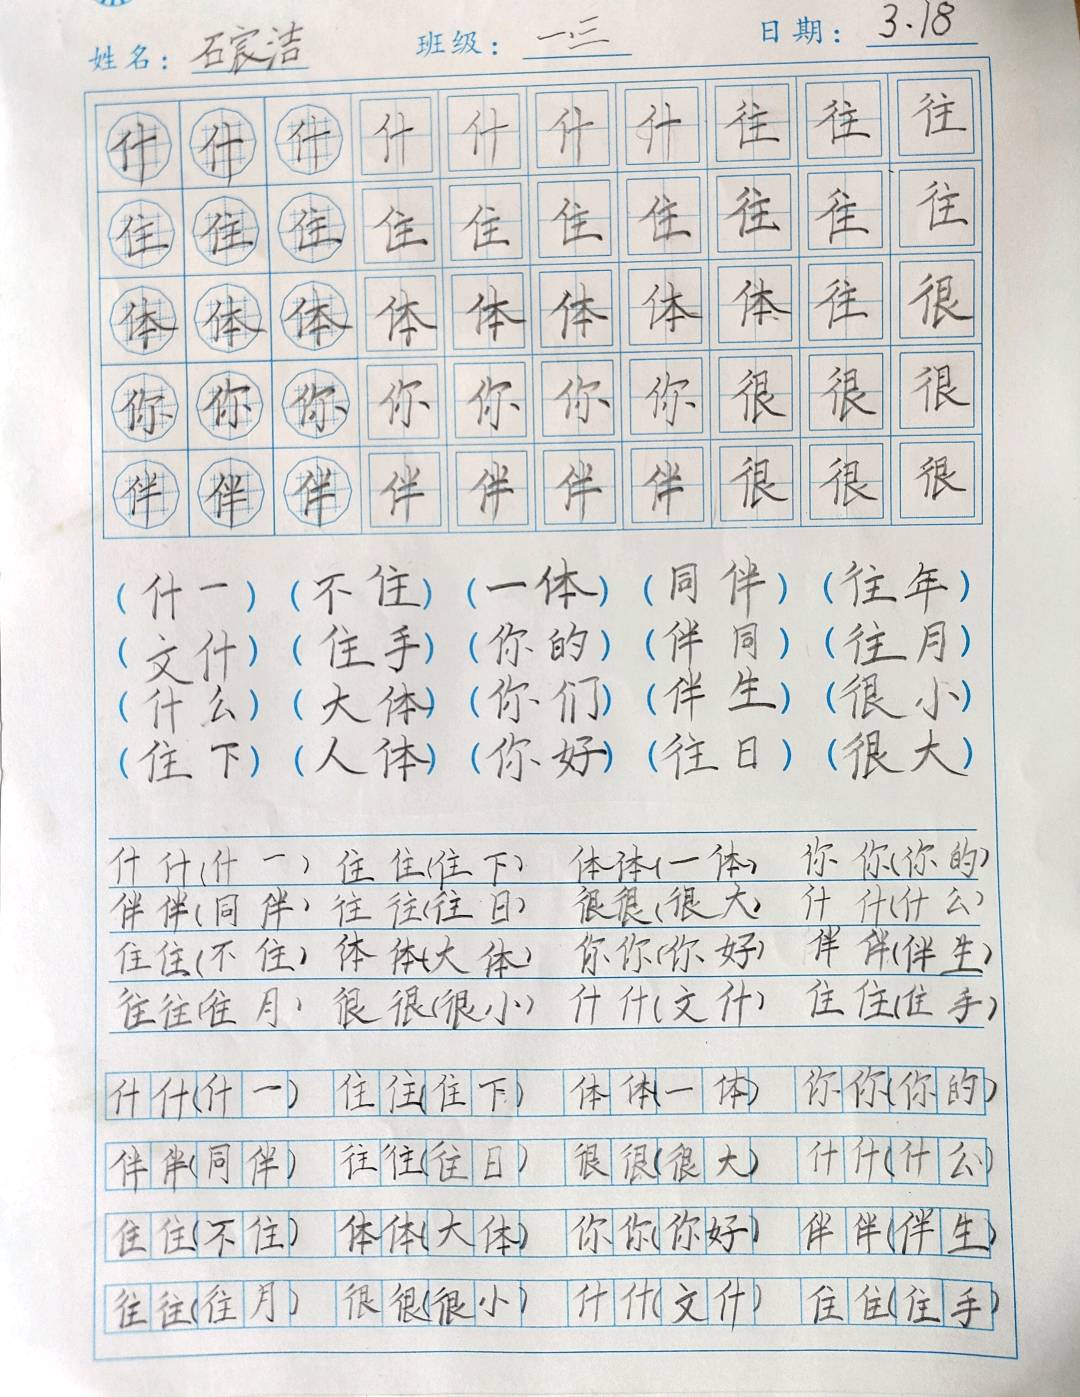 姓名：石宸洁 班级：一.三 日期：3.18
什 什 什 什 什 什 什 往 往 往
住 住 住 住 住 住 住 往 往 往
体 体 体 体 体 体 体 体 往 很
你 你 你 你 你 你 你 很 很 很
伴 伴 伴 伴 伴 伴 伴 很 很 很
(什一) (不住) (一体) (同伴) (往年)
(文什) (住手) (你的) (伴同) (往月)
(什么) (大体) (你们) (伴生) (很小)
(住下) (人体) (你好) (往日) (很大)
什什(什一) 住住(住下) 体体(一体) 你你(你的)
伴伴(同伴) 往往(往日) 很很(很大) 什什(什么)
住住(不住) 体体(大体) 你你(你好) 伴伴(伴生)
往往(往月) 很很(很小) 什什(文什) 住住(住手)
什什(什一) 住住(住下) 体体(一体) 你你(你的)
伴伴(同伴) 往往(往日) 很很(很大) 什什(什么)
住住(不住) 体体(大体) 你你(你好) 伴伴(伴生)
往往(往月) 很很(很小) 什什(文什) 住住(住手)